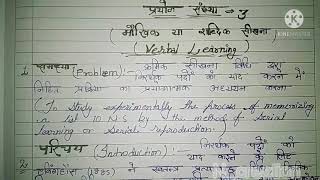 प्रयोग संख्या - 3
( मौखिक या शाब्दिक सीखना )
( Verbal Learning )
1 समस्या (Problem): क्रमिक सीखना विधि द्वारा
निरर्थक पदों को याद करने में
निहित प्रक्रिया का प्रयोगात्मक अध्ययन करना
( To study experimentally the process of memorizing
a list 10 N.S by the method of Serial
learning or Serial reproduction.
2 परिचय (Introduction): निरर्थक पदों को
याद करने के लिए
(1885) ने
KINEMASTER